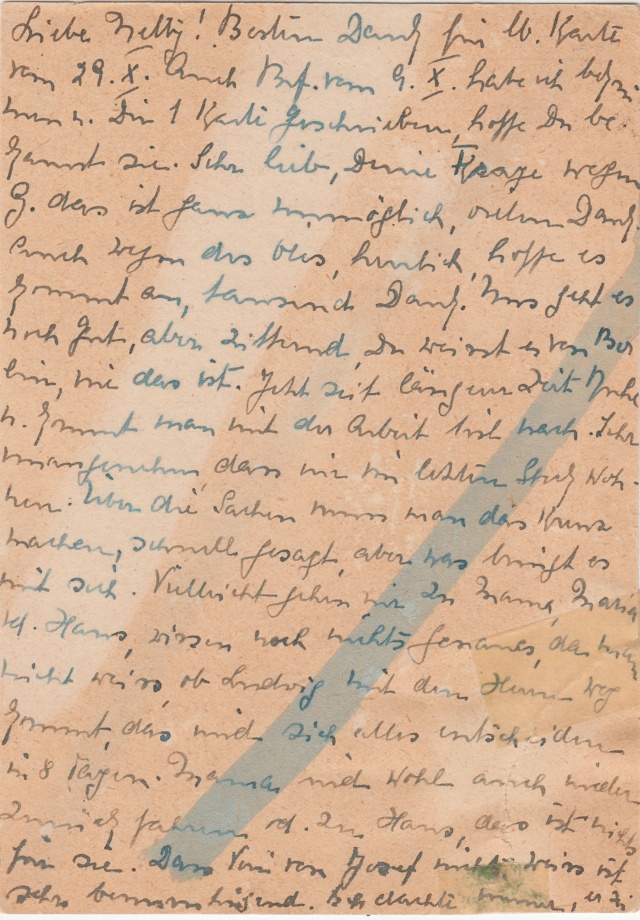 Liebe Nelly! Besten Dank für lb. Karte
vom 29.X. Auch Brf. vom 9.X. habe ich bekom
men u. Dir 1 Karte geschrieben, hoffe Du be-
kamst sie. Sehr lieb, Deine Frage wegen
G. das ist ganz unmöglich, vielen Dank.
Auch wegen des, herrlich, hoffe es
kommt an, tausend Dank. Uns geht es
noch gut, aber zitternd, Du weisst es von Ber
lin, wie das ist. Jetzt seit längerer Zeit Ruhe
u. kommt man mit der Arbeit nach. Sehr
unangenehm, dass wir im letzten Stock woh-
nen. Über die Sachen muss man das Kreuz
machen, schnell gesagt, aber was bringt es
mit sich. Vielleicht gehen wir zu Mama, Maria
od. Hans, wissen noch nichts genaues, da man
nicht weiss, ob Ludwig mit dem Heim weg
kommt, das wird sich alles entscheiden
in 8 Tagen. Mama wird wohl auch wieder
zurück fahren od. zu Hans, das ist nichts
für sie. Dass von Josef nichts weiss ist
sehr beunruhigend. Ich dachte immer, er